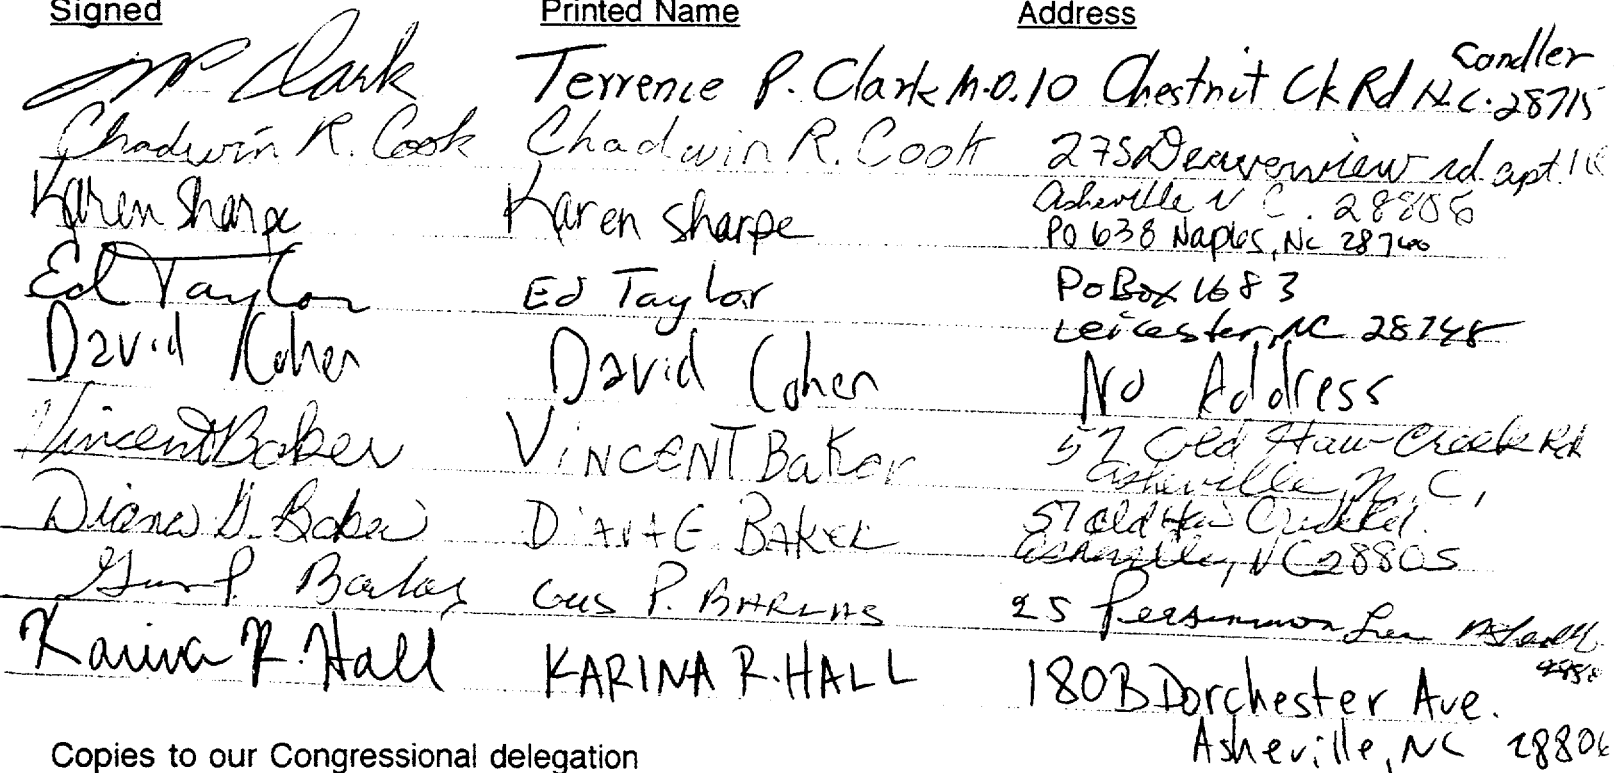 Signed Printed Name Address
TP Clark Terrence P. Clark M.D. 10 Chestnut Ck Rd Candler N.C. 28715
Chadwin R. Cook Chadwin R. Cook 275 Deaverview rd. apt.
Asheville N C. 28806
Karen Sharpe Karen Sharpe PO 638 Naples, NC 28760
Ed Taylor Ed Taylor PO Box 1683
Leicester, NC 28748
David Cohen David Cohen No Address
Vincent Baker VINCENT BaKer 57 Old Haw Creek Rd
Asheville, N.C,
Diane G. Baker DIANE BAKER 57 Old Haw Creek Rd.
Asheville, NC 28805
Gus P. Barlas GUS P. BARLAS 25 Persimmon
Karina R. Hall KARINA R. HALL 180B Dorchester Ave.
Asheville, NC 28806
Copies to our Congressional delegation